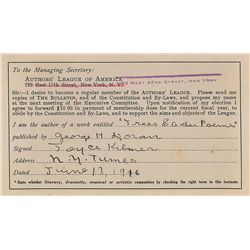 To the Managing Secretary of
AUTHORS' LEAGUE OF AMERICA
122 East 17th Street, New York, N. Y.
WEST 42ND STREET, NEW YORK
Sir:—I desire to become a regular member of the AUTHORS' LEAGUE. Please send me
copies of THE BULLETIN, and of the Constitution and By-Laws, and propose my
name at the next meeting of the Executive Committee. Upon notification of my election I
agree to forward $10.00 in payment of membership dues for the current fiscal year, to
abide by the Constitution and By-Laws, and to support the aims and objects of the League.
I am the author of a work entitled "Trees & Other Poems"
published by George H. Doran
Signed Joyce Kilmer
Address N.Y. Times
Date June 13, 1916
* State whether literary, dramatic, musical or artistic composition by checking the right term in this footnote